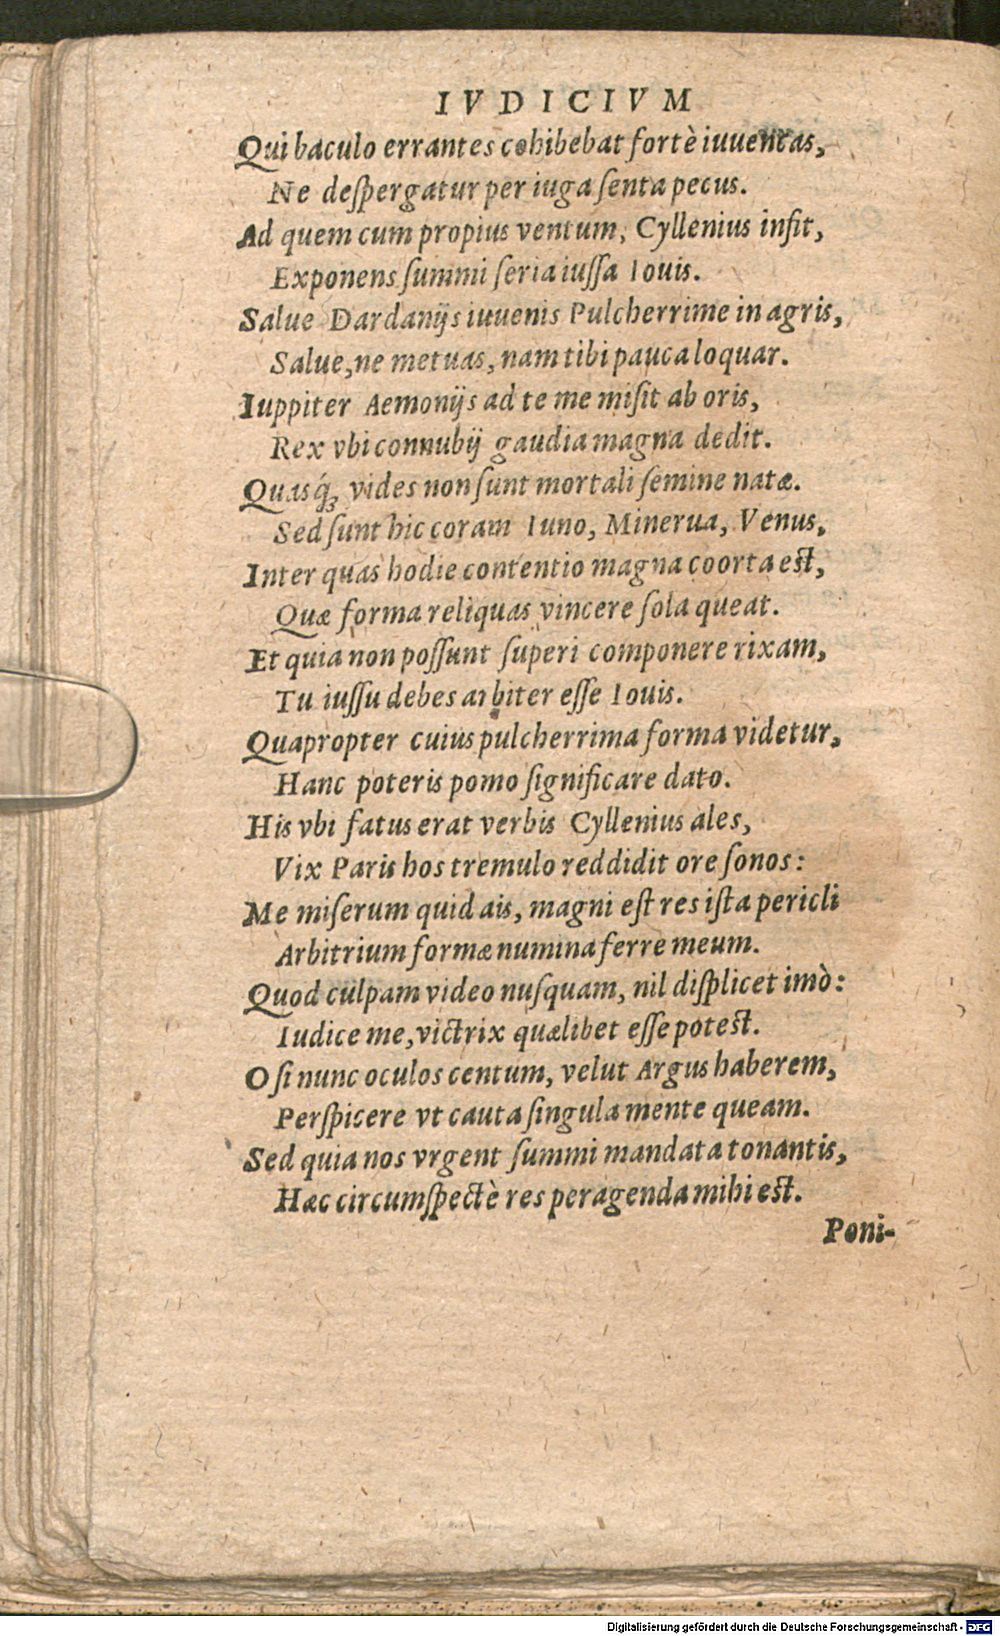 IVDICIVM
Qui baculo errantes cohibebat fortè iuuencas,
Ne deſpergatur per iuga ſenta pecus.
Ad quem cum propius ventum, Cyllenius infit,
Exponens ſummi ſeria iuſſa Iouis.
Salue Dardanijs iuuenis Pulcherrime in agris,
Salue, ne metuas, nam tibi pauca loquar.
Iuppiter Aemonijs ad te me miſit ab oris,
Rex vbi connubij gaudia magna dedit.
Quasq́; vides non ſunt mortali ſemine natæ.
Sed ſunt hic coram Iuno, Minerua, Venus,
Inter quas hodie contentio magna coorta est,
Quæ forma reliquas vincere ſola queat.
Et quia non poſſunt ſuperi componere rixam,
Tu iuſſu debes arbiter eſſe Iouis.
Quapropter cuius pulcherrima forma videtur,
Hanc poteris pomo ſignificare dato.
His vbi fatus erat verbis Cyllenius ales,
Vix Paris hos tremulo reddidit ore ſonos:
Me miſerum quid ais, magni eſt res iſta pericli
Arbitrium formæ numina ferre meum.
Quod culpam video nuſquam, nil diſplicet imò:
Iudice me, victrix quælibet eſſe potest.
O ſi nunc oculos centum, velut Argus haberem,
Perſpicere vt cauta ſingula mente queam.
Sed quia nos vrgent ſummi mandata tonantis,
Hæc circumſpectè res peragenda mihi est.
Poni-
Digitalisierung gefördert durch die Deutsche Forschungsgemeinschaft - DFG